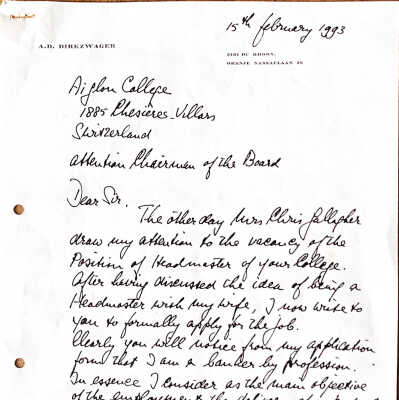 15th february 1993
A.D. DIRKZWAGER
3161 DC RHOON,
ORANJE NASSAULAAN 26
Aiglon College
1885 Chesières-Villars
Switzerland
attention Chairman of the Board
Dear Sir.
The other day Mrs Chris Gallagher
draw my attention to the vacancy of the
Position of Headmaster of your College.
After having discussed the idea of being a
Headmaster with my wife, I now write to
you to formally apply for the job.
Clearly you will notice from my application
form that I am a banker by profession.
In essence I consider as the main objective
of the employment the